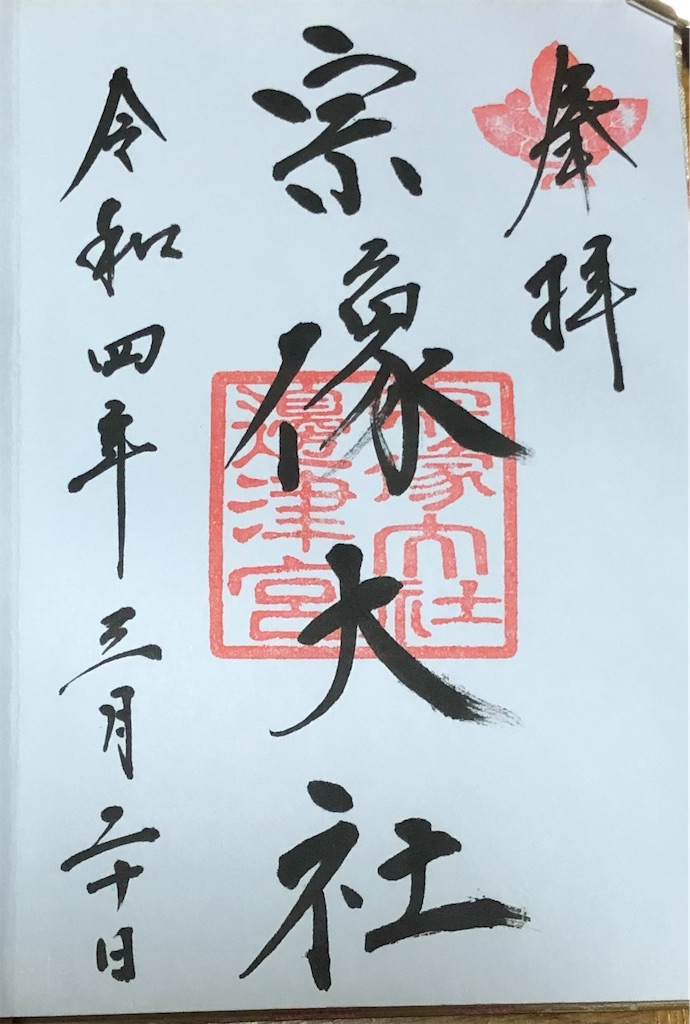 奉拝
宗像大社
宗像大社
邊津宮
令和四年三月二十日